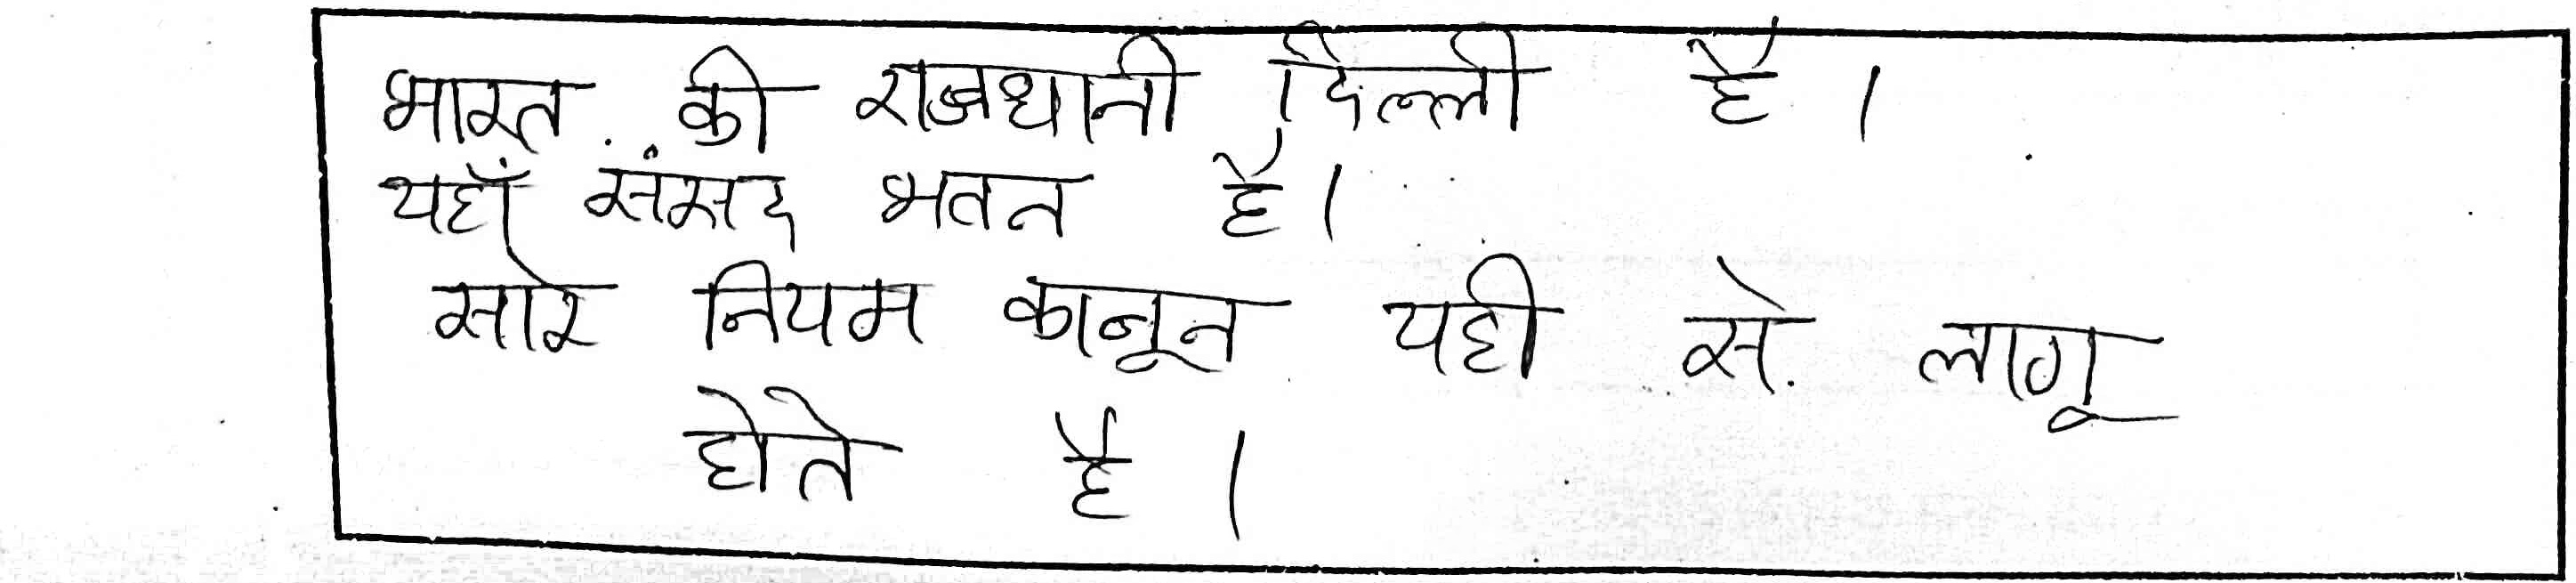 भारत की राजधानी दिल्ली है ।
यहाँ संसद भतन है।
सारे नियम कानून यही से लागू
होते है ।